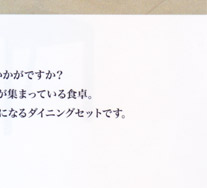 かがですか？
が集まっている食卓。
になるダイニングセットです。